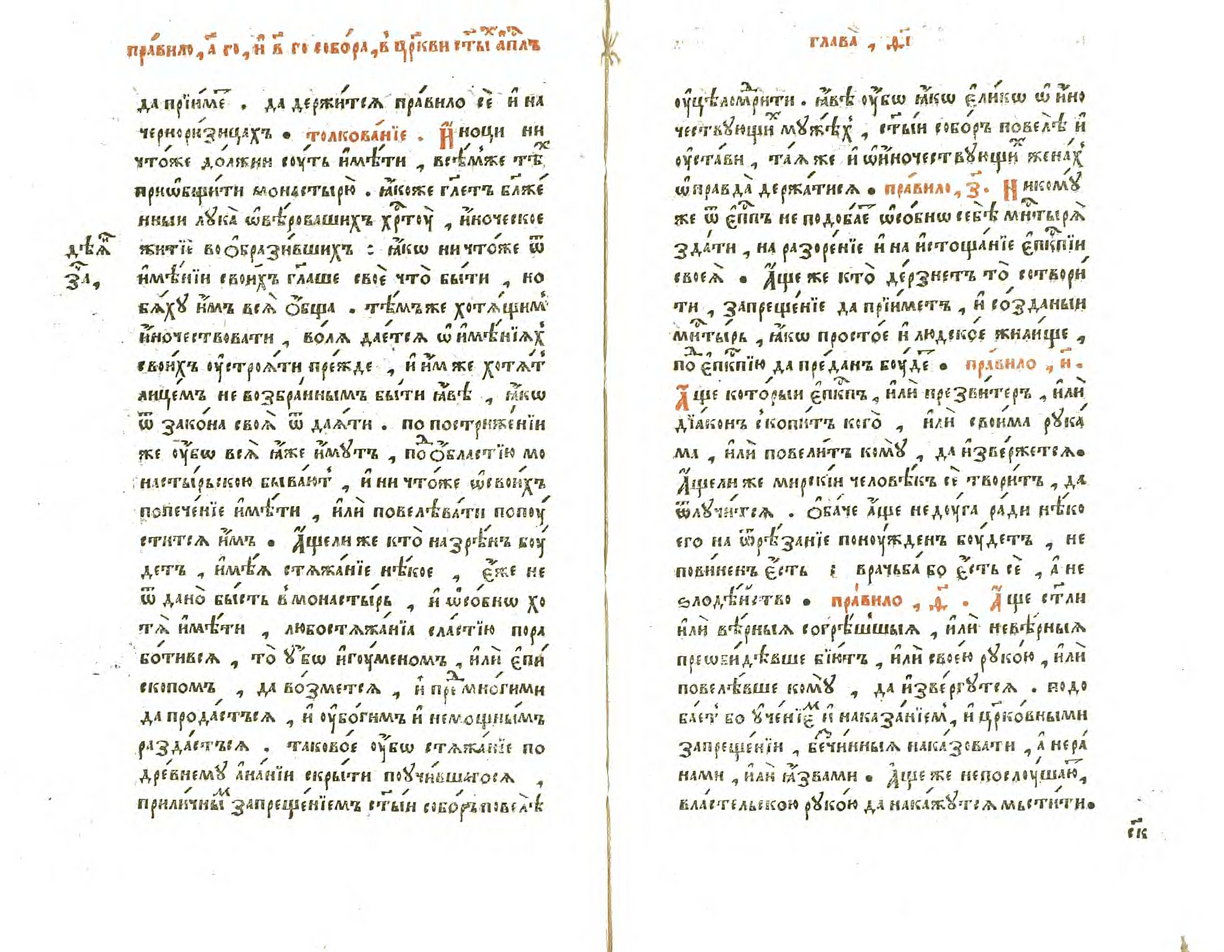 пра́вило, а҃ го, и҆ в҃ го собо́ра, в̾ цр҃кви ст҃ы́х а҆п҃лъ
да прїи́метъ . да держи́тсѧ пра́вило сѐ и҆ на
черноризицахъ . толкова́нїе . И҆́ноци ни
что́же до́лжни сꙋ́ть и҆мѣ́ти , всѧ́ мже тѣ́х
приѡбщи́ти монастырю̀ . ꙗ҆́коже гл҃етъ бл҃же́
нныи лꙋка̀ ѡ҆вѣ́ровашихъ хрⷭ҇тꙋ̀ , и҆́ноческое
дѣѧ҃
житїѐ воѻбрази́вшихъ : ꙗ҆́кѡ ничто́же ѿ
за҃,
и҆мѣ́нїи свои́хъ гл҃аше своѐ что̀ бы́ти , но
бѧ́хꙋ и҆̀мъ всѧ̀ ѻ҆́бща . тѣ́мъже хотѧ́щим
и҆́ночествовати , во́лѧ дае́тсѧ ѡ҆ и҆мѣ́нїѧх
свои́хъ ᲂу҆строѧ́ти пре́жде , и҆ и҆́мже хотѧ́т
лице́мъ не возбра́ннымъ бы́ти ꙗ҆́вѣ , ꙗ҆́кѡ
ѿ зако́на своѧ̀ ѿ даѧ́ти . по пострижє́нїи
же ᲂу҆́бѡ всѧ̀ ꙗ҆́же и҆́мꙋтъ , подѻ́бластїю мо
насты́рьскою быва́ют , и҆ ничто́же ѡ҆свои́хъ
попече́нїе и҆мѣ́ти , и҆лѝ повелѣва́ти попꙋ
сти́тсѧ и҆̀мъ . А҆́щели же кто̀ назрѣ́нъ бꙋ́
детъ , и҆мѣ́ѧ стѧжа́нїе нѣ́кое , є҆́же не
ѿ дано̀ бы́сть в̾монасты́рь , и҆ ѡ҆со́бнѡ хо
тѧ̀ и҆мѣ́ти , любостѧжа́нїа сла́стїю пора
бо́тивсѧ , то̀ ᲂу҆́бѡ и҆гꙋ́меномъ , и҆лѝ є҆пи́
скопомъ , да во́зметсѧ , и҆ пред мно́гими
да прода́стъсѧ , и҆ ᲂу҆бо́гимъ и҆ немощны́мъ
разда́стъсѧ . таково́е ᲂу҆́бѡ стѧжа́нїе по
дре́внемꙋ а҆на́нїи скры́ти поꙋчи́вшагосѧ ,
прили́чным запреще́нїемъ ст҃ы́и собо́ръ повелѣ̀
глава̀ , д҃ї
ᲂу҆цѣломꙋ́дрити . ꙗ҆́вѣ ᲂу҆́бѡ ꙗ҆́кѡ є҆ли́кѡ ѡ҆ и҆́но
чествꙋющих мꙋ́жѣх , ст҃ы́и собо́ръ повелѣ̀ и҆
ᲂу҆ста́ви , та́ѧже и҆ ѡ҆и҆́ночествꙋющих жена́х
ѡ҆пра́вда̀ держа́тисѧ . пра́вило , з҃. Никомꙋ́
же ѿ є҆п҃пъ не подоба́е ѡ҆со́бнѡ себѣ̀ мн҃тырѧ̀
зда́ти , на разоре́нїе и҆ на и҆стоща́нїе є҆п҃кпїи
своеѧ̀ . А҆́ще же кто̀ де́рзнетъ то̀ сотвори́
ти , запреще́нїе да прїи́метъ , и҆ со́зданыи
мн҃тырь , ꙗ҆́кѡ просто́е и҆ людско́е жили́ще ,
под є҆п҃кпїю да пре́данъ бꙋ́де . пра́вило , и҃.
А҆́ще кото́рыи є҆п҃кпъ , и҆лѝ презви́теръ , и҆лѝ
дїа́конъ скопи́тъ кого̀ , и҆лѝ свои́ма рꙋка́
ма , и҆лѝ повели́тъ комꙋ̀ , да и҆зве́ржетсѧ.
А҆́щели же мирскі́и человѣ́къ сѐ твори́тъ , да
ѿлꙋчи́тсѧ . Ѻ҆ба́че а҆́ще недꙋ́га ра́ди нѣ́ко
его на ѿрѣ́занїе понꙋжде́нъ бꙋ́детъ , не
пови́ненъ є҆́сть : врачьба́ бо є҆́сть сѐ , а҆ не
ѕлодѣ́иство . пра́вило , д҃ . А҆́ще ст҃ли
и҆лѝ вѣ́рныѧ согрѣ́шшыѧ , и҆лѝ невѣ́рныѧ
преѡби́дѣвше бїю́тъ , и҆лѝ свое́ю рꙋко́ю , и҆лѝ
повелѣ́вше комꙋ̀ , да и҆зве́ргꙋтсѧ . подо
ба́ет бо ᲂу҆че́нїем и҆ наказа́нїем , и҆ цр҃ко́вными
запреще́нїи , бе́чинныѧ наказовати , а҆ нера́
нами , и҆лѝ ꙗ҆́звами . А҆́ще же непослꙋ́шаю ,
вла́стельскою рꙋко́ю да нака́жꙋтсѧ мьсти́ти.
ск҃